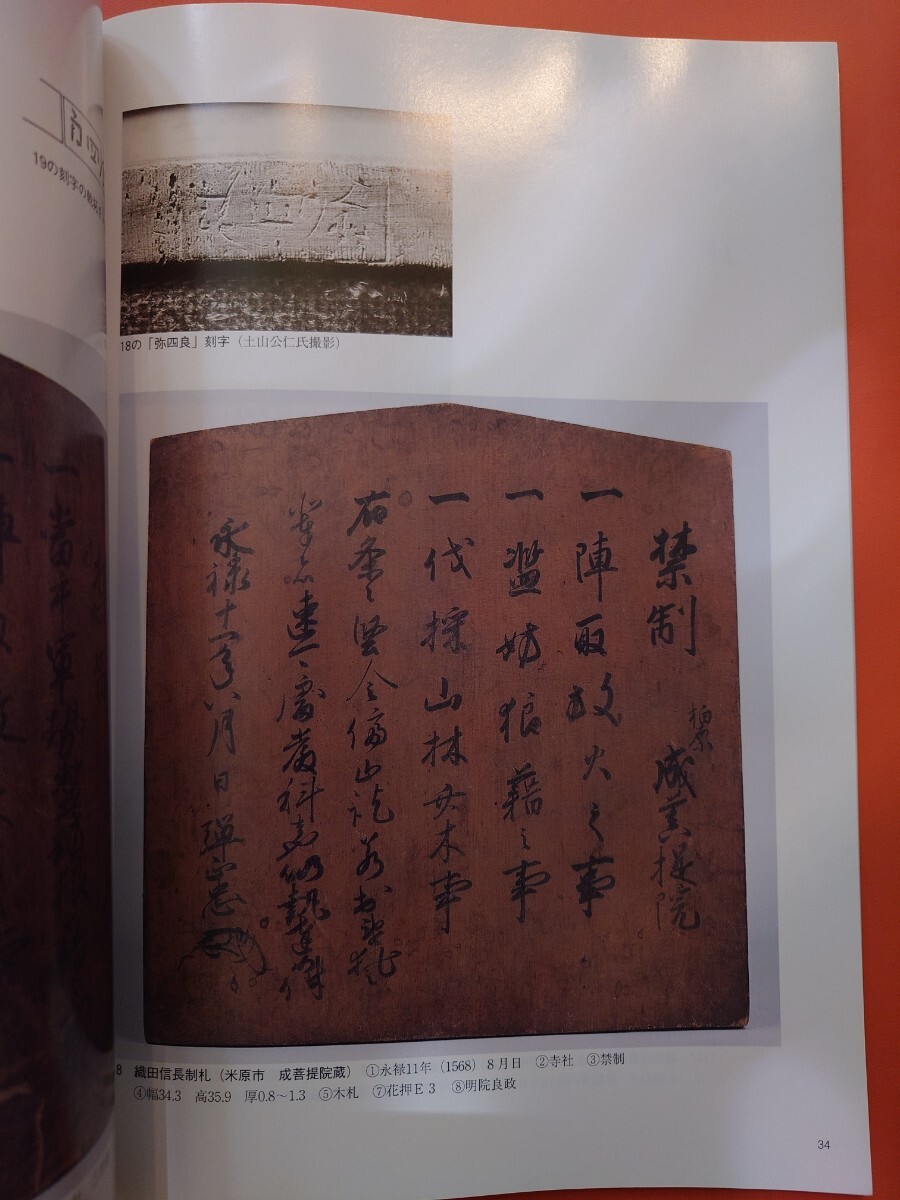 19の刻字の
18の「弥四良」刻字（土山公仁氏撮影）
禁制
柏原
成菩提院
一陣取放火之事
一濫妨狼藉之事
一伐採山林竹木事
右条々堅令停止訖若於違犯
輩者速可処厳科者也仍執達如件
永禄十一年八月日弾正忠
8 織田信長制札（米原市 成菩提院蔵） ①永禄11年（1568）8月日 ②寺社 ③禁制
④幅34.3 高35.9 厚0.8～1.3 ⑤木札 ⑦花押E3 ⑧明院良政
34